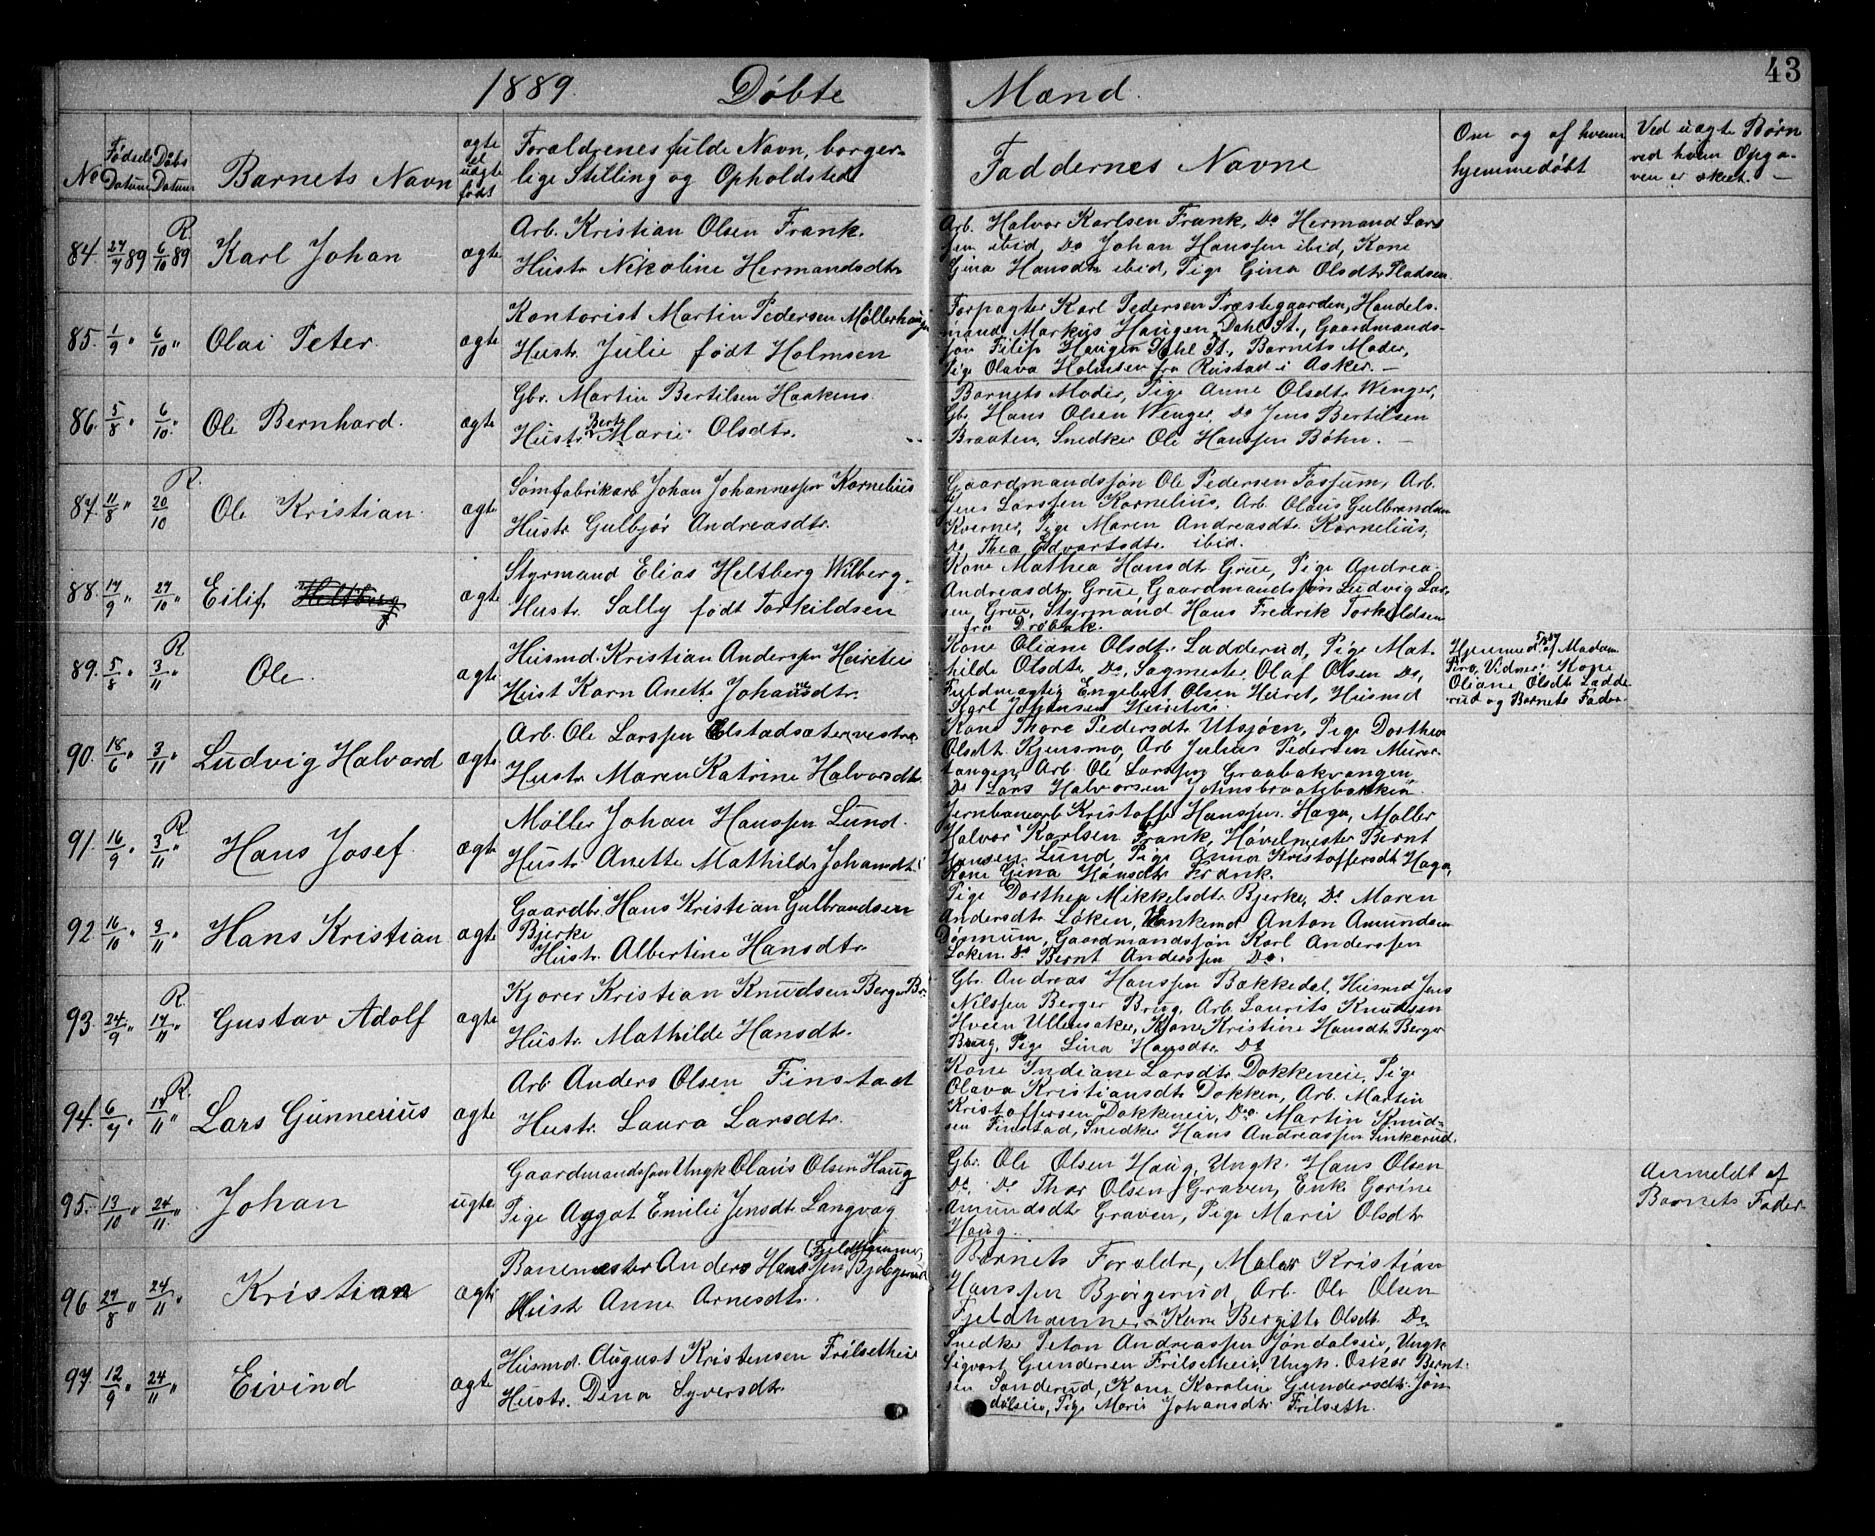 43
1889. Døbte Mænd.
No Fødsels Datum Døbs Datum Barnets Navn ægte el uægte født Forældrenes fulde Navn, borger-
lige Stilling og Opholdsted Faddernes Navne Om og af hvem
hjemmedøbt Ved uægte Børn
ved hvem Opga-
ven er skeet.
84. 27/7 89 6/10 89 R. Karl Johan ægte
Arb. Kristian Olsen Frank.
Hustr. Nikoline Hermandsdtr.
Arb. Halvor Karlsen Frank, Do Hermand Lars
sen ibid, Do Johan Hanssen ibid, Kone
Gina Hansdtr ibid, Pige Gina Olsdtr Pladsen.
85. 1/9 " 6/10 " Olai Peter. ægte
Kontorist Martin Pedersen Møllerhaugen
Hustr. Julie født Holmsen
Forpagter Karl Pedersen Præstegaarden, Handels-
mand Markus Haugen Dahl St., Gaardmands-
søn Filip Haugen Dahl St., Barnets Moder,
Pige Olava Holmsen fra Rustad i Asker. —
86. 5/8 " 6/10 " Ole Bernhard. ægte
Gbr. Martin Bertilsen Haakens.
Hustr. Berte Marie Olsdtr.
Barnets Moder, Pige Anne Olsdtr Wenger,
Gbr. Hans Olsen Wenger, Do Jens Bertilsen
Braaten, Snedker Ole Hanssen Bøhn. —
87. 11/8 " 20/10 R. Ole Kristian. ægte
Sømfabrikarb. Johan Johannessen Kornelius
Hustr. Gulbjør Andreasdtr.
Gaardmandssøn Ole Pedersen Fossum, Arb.
Jens Larssen Kornelius, Arb. Olaus Gulbrandsen
Kværner, Pige Maren Andreasdtr. Kornelius,
Do Thea Edvartsdtr. ibid.
88. 17/9 " 27/10 " Eilif Heltberg ægte
Styrmand Elias Heltberg Wilberg.
Hustr. Sally født Torkildsen
Kone Mathea Hansdtr Grue, Pige Andrea
Andreasdtr. Grue, Gaardmandssøn Ludvig Lar-
sen Grue, Styrmand Hans Fredrik Torkildsen
fra Drøbak.
89. 5/8 " 3/11 " R Ole. ægte
Husmd. Kristian Anderssen
Hust Karn Anette Johannesdtr.
Kone Oliane Olsdtr. Ladderud, Pige Mat-
hilde Olsdtr. Do, Sagmester Olaf Olsen Do,
Fuldmægtig Engebret Olsen Huret, Husmd
Karl Johansen
Hjemmed. af Madam
Vidner: Kone
Oliane Olsdtr Ladde-
rud og Barnets Fader.
90. 18/6 " 3/11 " Ludvig Halvard ægte
Arb. Ole Larssen Olstadsæter vestre
Hustr. Maren Katrine Halvorsdtr
Kone Thore Pedersdtr Utsjøen, Pige Dorthea
Olsdtr. Kjensmo, Arb Julius Pedersen Muse-
tangen, Arb. Ole Larssen Graabakvangen
Do Lars Halvorsen Johnsbraatebakken.
91. 16/9 " 3/11 " R. Hans Josef. ægte
Møller Johan Hanssen Lund.
Hustr. Anette Mathilde Johansdtr.
Jernbanearb Kristoffer Hanssen Haga, Møller
Halvor Karlsen Frank, Høvelmester Bernt
Hansen Lund, Pige Anna Kristoffersdtr Haga,
Kone Gina Hansdtr Frank.
92. 16/10 " 3/11 " Hans Kristian ægte
Gaardbr. Hans Kristian Gulbrandsen
Bjerke
Hustr. Albertine Hansdtr.
Pige Dorthea Mikkelsdtr Bjerke, Do Maren
Andersdtr. Løken, Enkemd Anton Amundsen
Dismum, Gaardmandssøn Karl Anderssen
Løken. Do Bernt Anderssen Do.
93. 24/9 " 17/11 " R. Gustav Adolf ægte
Kjører Kristian Knudsen Berger Br.
Hustr. Mathilde Hansdtr.
Gbr. Andreas Hanssen Bækkedal, Husmd Jens
Nilssen Berger Brug, Arb. Laurits Knudsen
Hveen Ullensaker, Kone Kristine Hansdtr Berger
Brug, Pige Lina Hansdtr. Do
94. 6/7 " 17/11 " R. Lars Gunnerius ægte
Arb. Anders Olsen Finstad
Hustr. Laura Larsdtr.
Kone Indiane Larsdtr. Dokkeneie, Pige
Olava Kristiansdtr Dokken, Arb. Martin
Kristoffersen Dokkeneie, Do Martin Knud-
sen Finstad, Snedker Hans Andreassen Sinkerud.
95. 13/10 " 24/11 " Johan ugte
Gaardmandssøn Ungk Olaus Olsen Haug
Pige Aagot Emilie Jensdtr. Langvag
Gbr. Ole Olsen Haug, Ungk. Hans Olsen
Do, Do Thor Olsen Graven, Enke Gorine
Amundsdtr Graven, Pige Marie Olsdtr
Haug.
Anmeldt af
Barnets Fader.
96 27/8 " 24/11 " Kristian ægte
Banemester Anders Hanssen Bjørgerud (Fjeldhammer,
Hustr Anne Arnesdtr.
Barnets Forældre, Maler Kristian
Hanssen Bjørgerud, Arb. Ole Olsen
Fjeldhammer, Karn Bergitte Olsdtr Do
97. 12/9 " 24/11 " Eivind ægte
Husmd. August Kristensen Frilsetheie
Hustr. Dina Syversdtr.
Snedker Peton Andreassen Jøndalseie, Ungk
Sigvart Gundersen Frilsetheie, Ungk. Oskar Bernt-
sen Sanderud, Kone Karoline Gundersdtr. Jøn-
dalseie, Pige Marie Johansdtr Frilseth.